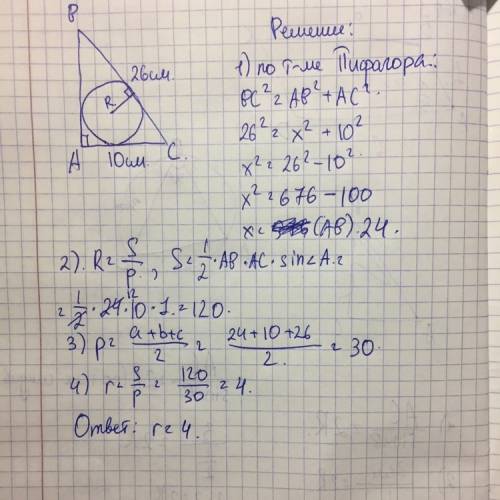 B
26см.
R
A
10см.
C.
Решение:
1) по т-ме Пифагора:
BC² = AB² + AC².
26² = x² + 10²
x² = 26² - 10²
x² = 676 - 100
x = (AB) 24.
2). R = S/p, S = 1/2 · AB · AC · sin∠A =
= 1/2 · 24 12 · 10 · 1 = 120.
3) p = a+b+c/2 = 24+10+26/2. = 30.
4) r = S/p = 120/30 = 4.
Ответ: r = 4.